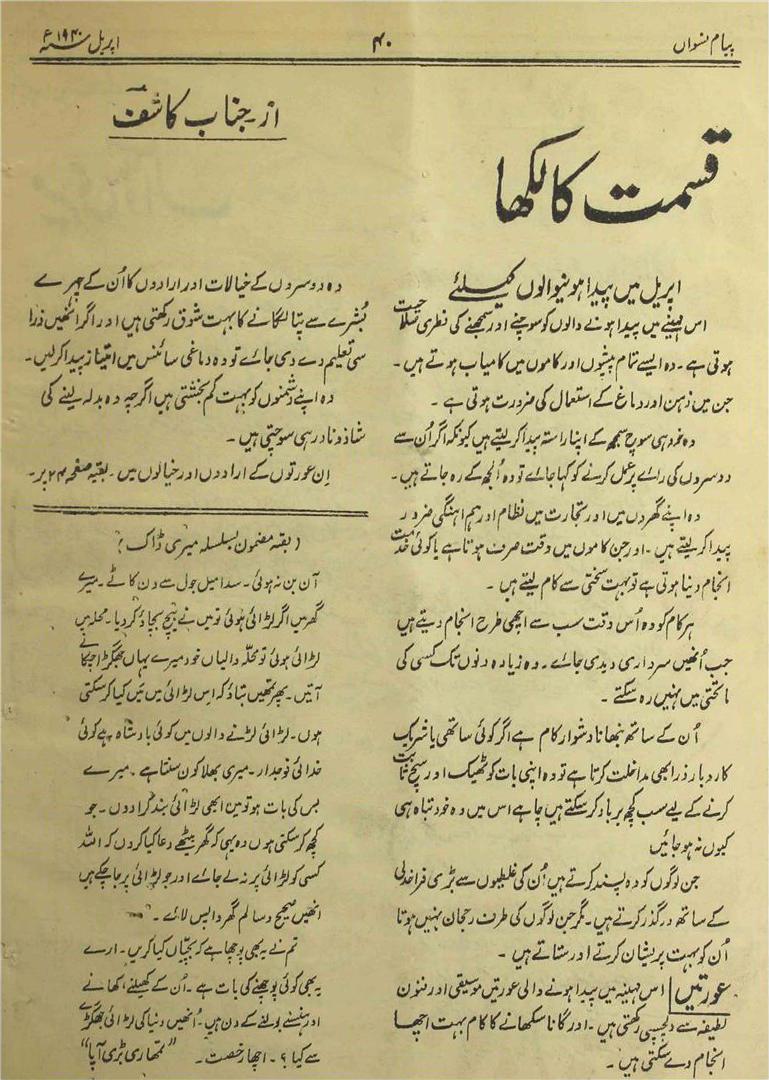 پیام نسواں
۴۰
اپریل سنہ ۱۹۴۰ء
قسمت کا لکھا
از جناب کاشف
اپریل میں پیدا ہونیوالوں کیلئے
اس مہینے میں پیدا ہونے والوں کو سوچنے اور سمجھنے کی فطری صلاحیت
ہوتی ہے۔ وہ ایسے تمام پیشوں اور کاموں میں کامیاب ہوتے ہیں۔
جن میں ذہن اور دماغ کے استعمال کی ضرورت ہوتی ہے۔
وہ خود ہی سوچ سمجھ کے اپنا راستہ پیدا کر لیتے ہیں کیونکہ اگر اُن سے
دوسروں کی رائے پر عمل کرنے کو کہا جائے تو وہ اُلجھ کے رہ جاتے ہیں۔
وہ اپنے گھروں میں اور تجارت میں نظام اور ہم آہنگی ضرور
پیدا کر لیتے ہیں۔ اور جن کاموں میں وقت صرف ہوتا ہے یا کوئی خدمت
انجام دینا ہوتی ہے تو بہت سختی سے کام لیتے ہیں۔
ہر کام کو وہ اُس وقت سب سے اچھی طرح انجام دیتے ہیں
جب اُنھیں سرداری دیدی جائے۔ وہ زیادہ دنوں تک کسی کی
ماتحتی میں نہیں رہ سکتے۔
اُن کے ساتھ نبھانا دشوار کام ہے اگر کوئی ساتھی یا شریک
کاروبار ذرا بھی مداخلت کرتا ہے تو وہ اپنی بات کو ٹھیک اور سچ ثابت
کرنے کے لیے سب کچھ برباد کر سکتے ہیں چاہے اس میں وہ خود تباہ ہی
کیوں نہ ہو جائیں
جن لوگوں کو وہ پسند کرتے ہیں اُن کی غلطیوں سے بڑی فراخدلی
کے ساتھ درگذر کرتے ہیں۔ مگر جن لوگوں کی طرف رجحان نہیں ہوتا
اُن کو بہت پریشان کرتے اور ستاتے ہیں۔
عورتیں اس مہینہ میں پیدا ہونے والی عورتیں موسیقی اور فنون
لطیفہ سے دلچسپی رکھتی ہیں۔ اور گانا سکھانے کا کام بہت اچھا
انجام دے سکتی ہیں۔
وہ دوسروں کے خیالات اور ارادوں کا اُن کے چہرے
بُشرے سے پتا لگانے کا بہت شوق رکھتی ہیں اور اگر انھیں ذرا
سی تعلیم دے دی جائے تو وہ دماغی سائنس میں امتیاز پیدا کرلیں۔
وہ اپنے دشمنوں کو بہت کم بخشتی ہیں اگرچہ وہ بدلہ لینے کی
شاذ و نادر ہی سوچتی ہیں۔
اِن عورتوں کے ارادوں اور خیالوں میں۔ بقیہ صفحہ ۲۴ پر۔
(بقیہ مضمون بسلسلہ میری ڈاک)
آن بن نہ ہوئی۔ سدا میل جول سے دن کاٹے۔ میرے
گھر میں اگر لڑائی ہوئی تو میں نے بیچ بچاؤ کر دیا۔ محلہ میں
لڑائی ہوئی تو محلہ والیاں خود میرے یہاں جھگڑا چکانے
آتیں۔ پھر تمھیں بتاؤ کہ اس لڑائی میں میں کیا کر سکتی
ہوں۔ لڑائی لڑنے والوں میں کوئی بادشاہ ہے کوئی
خدائی فوجدار۔ میری بھلا کون سنتا ہے۔ میرے
بس کی بات ہو تو میں ابھی لڑائی بند کرا دوں۔ جو
کچھ کر سکتی ہوں وہ یہی کہ گھر بیٹھے دعا کیا کروں کہ اللہ
کسی کو لڑائی پر نہ لے جائے اور جو لڑائی پر جا چکے ہیں
انھیں صحیح و سالم گھر واپس لائے۔
تم نے یہ بھی پوچھا ہے کہ بچیاں کیا کریں۔ ارے
یہ بھی کوئی پوچھنے کی بات ہے۔ اُن کے کھیلنے، کھانے
اور ہنسنے بولنے کے دن ہیں۔ اُنھیں دنیا کی لڑائی جھگڑے
سے کیا؟۔ اچھا رخصت۔ "تمھاری بڑی آپا"